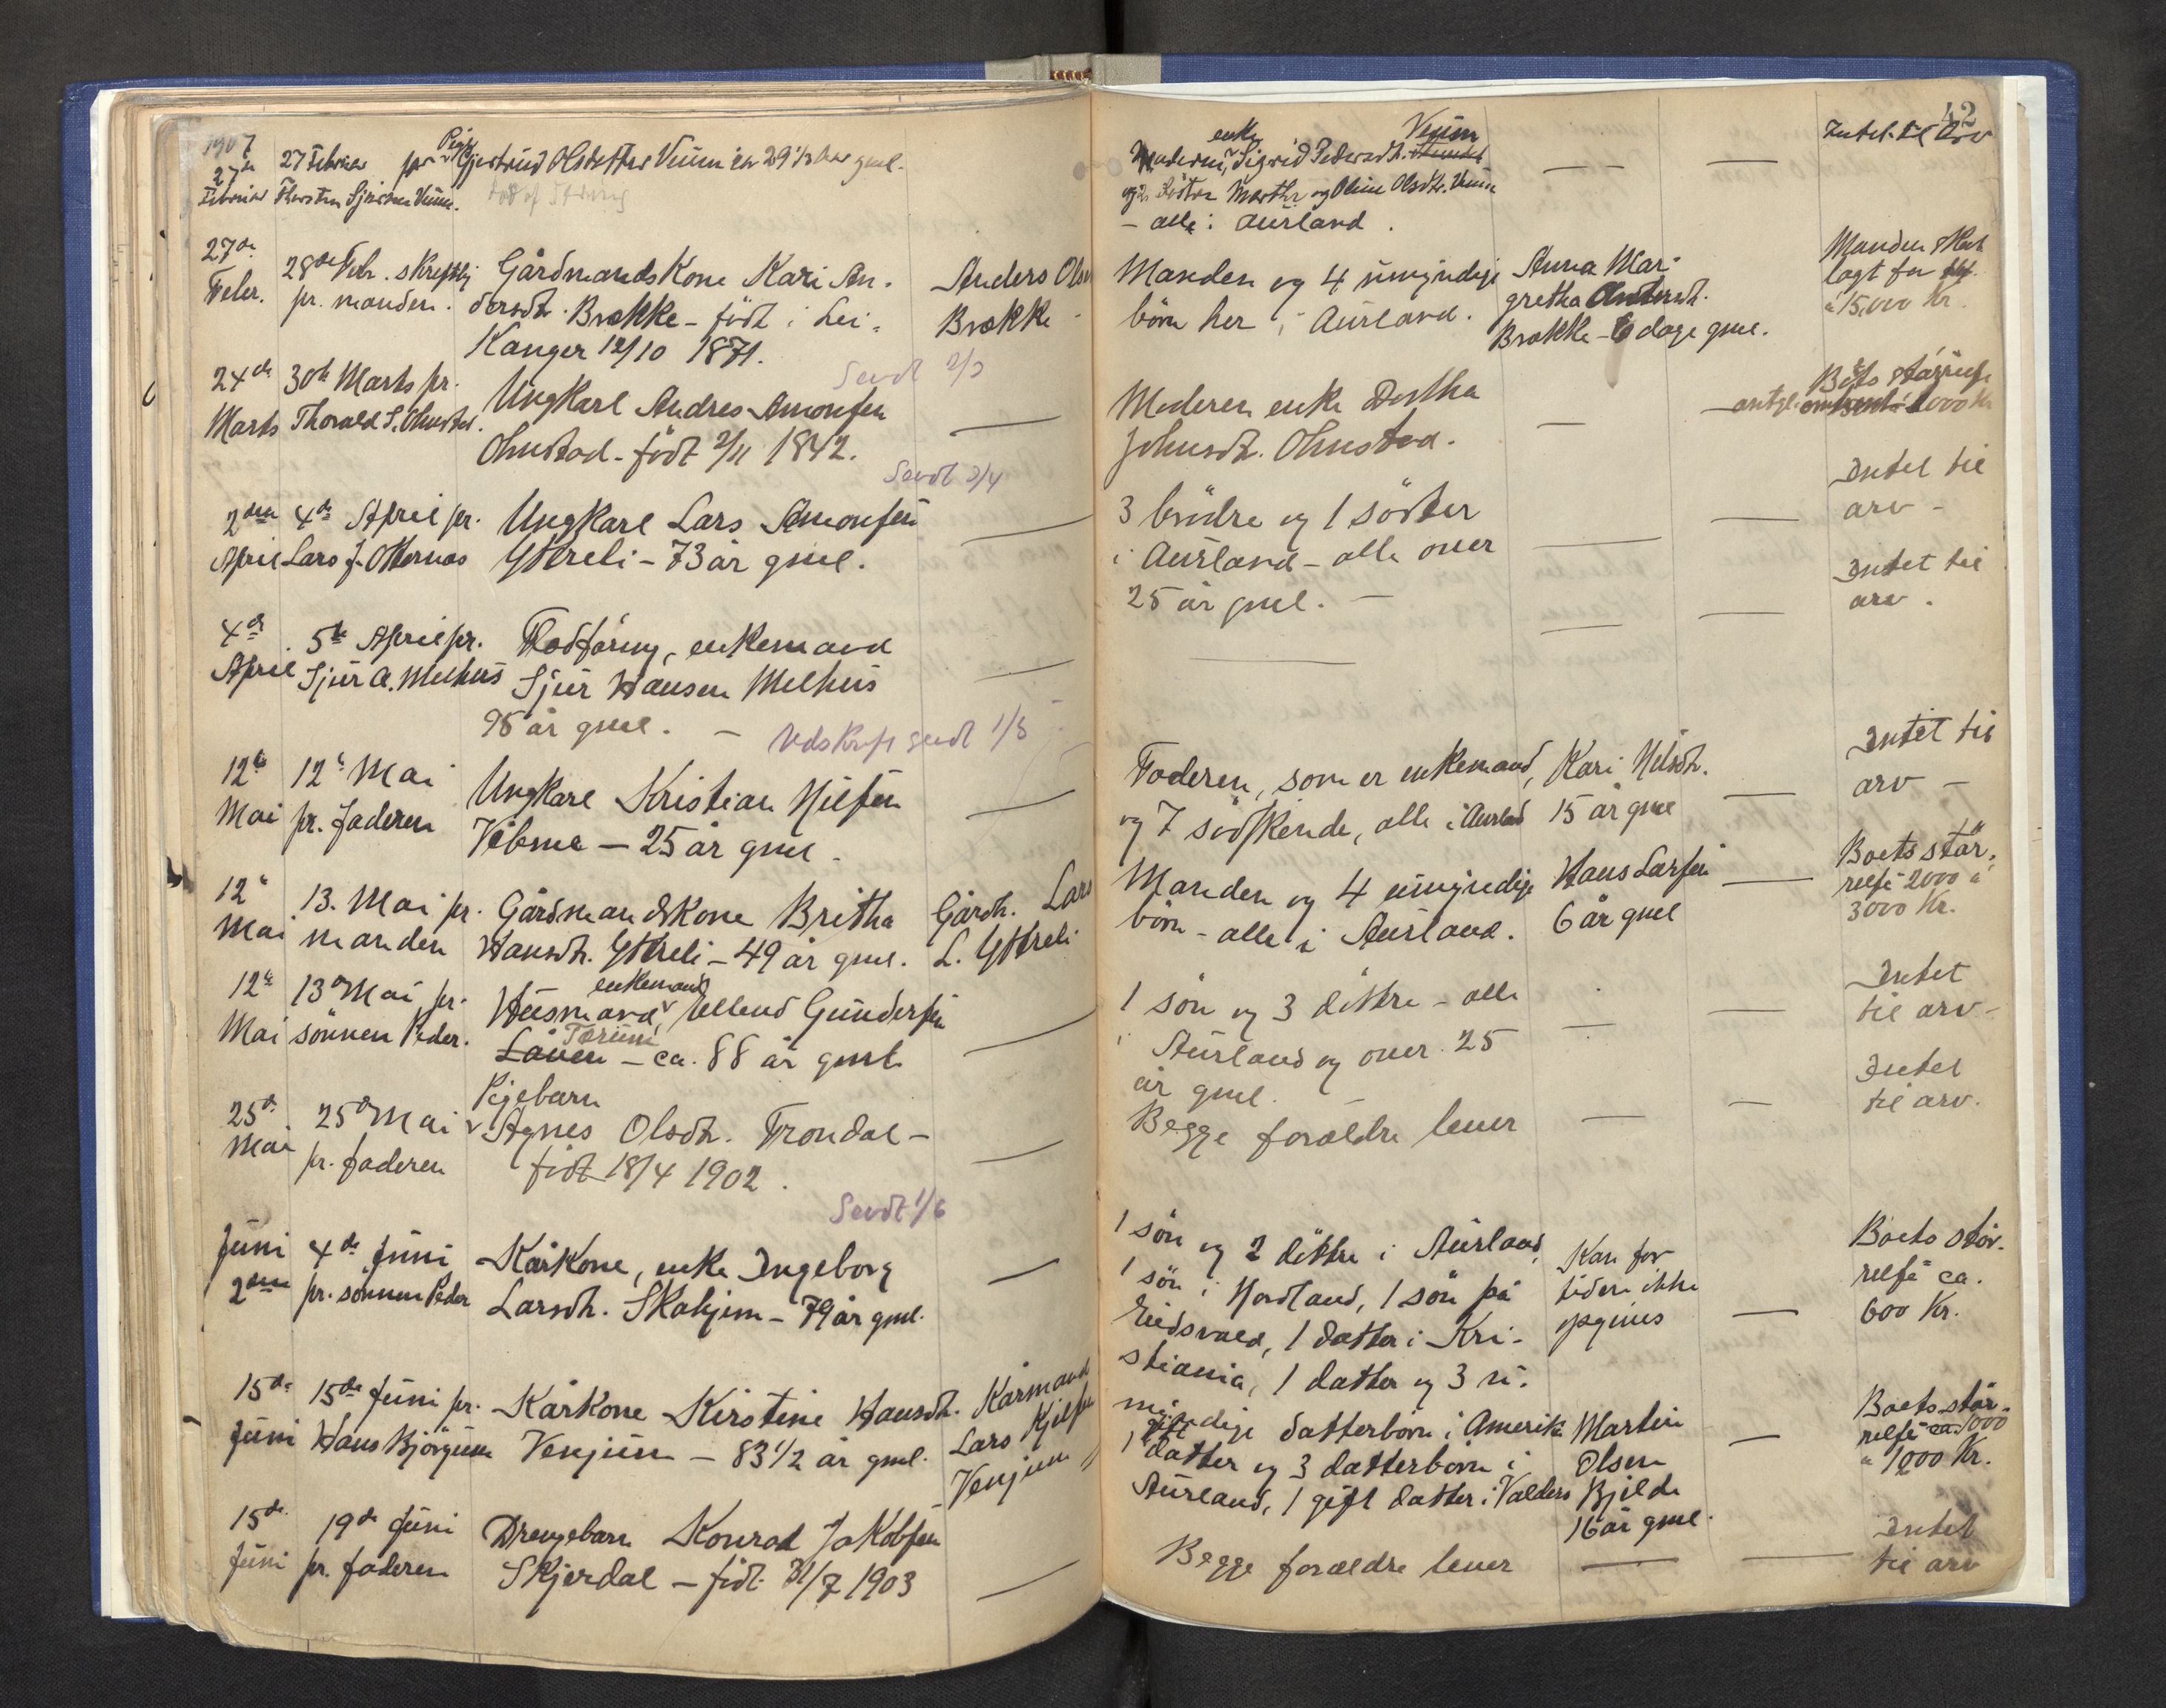 1907
27de 27 Februar pr Pige Gjertrud Olsdatter Vinm er 29 1/2 aar gml.
Februar Thorsten Sjursen Vinm.
27de 28de Febr. skriftlig Gårdmandskone Kari An- Anders Olsen
Febr. pr. manden. dersdtr. Brække - født i Lei- Brække
kanger 12/10 1871.
Sendt 2/3
24de 30te Marts pr. Ungkarl Andres Amonsen
Marts Thorald S. Ohnstad. Ohnstad - födt 2/11 1842.
Sendt 2/4
2den 4de April pr. Ungkarl Lars Amonsen
April Lars J. Otternæs Ytreli - 73 år gml.
4de 5te April pr. Flodföring, enkemand
April Sjur A. Melhus Sjur Hansen Melhus
95 år gml. -
Udskrift sendt 1/5
12te 12te Mai Ungkarl Kristian Nilsen
Mai pr. faderen Vibme - 25 år gml.
12te 13. Mai pr. Gårdmandskone Britha Gårdb. Lars
Mai manden Hansdtr. Ytreli - 49 år gml. L. Ytreli
enkemand
12te 13de Mai pr. Husmand Ellend Gundersen
Mai sönnen Peder. Låven Tærum - ca. 88 år gml.
Pigebarn
25de 25de Mai Agnes Olsdtr. Frondal -
Mai pr. faderen födt 18/4 1902.
Sendt 1/6
Juni 4de Juni Kårkone, enke Ingeborg
2den pr. sönnen Peder Larsdtr. Skahjem - 79 år gml.
15de 15de Juni pr. Kårkone Kirstine Hansdtr. Kårmand
Juni Hans Bjørgum Venjum - 83 1/2 år gml. Lars Kjelsen
Venjum
15de 19de Juni Drengebarn Konrad Jakobsen
Juni pr. faderen Skjerdal - födt 31/7 1903
42
enke Vinm
Moderen, Sigrid Pedersdtr. Intet til Arv
og 2 Søstre Marthe og Oline Olsdtr. Vinm
- alle i Aurland.
Manden og 4 umyndige Anna Mar- Manden skat-
börn her i Aurland. gretha Andersdt. lagt for
Brække - 6 dage gml. 15,000 Kr.
Moderen enke Dortha Boets störrelse
Johnsdtr. Ohnstad. antgl. 1000 Kr
3 brödre og 1 söster Intet til
i Aurland - alle over arv -
25 år gml. - Intet til
arv.
Faderen, som er enkemand, Kari Nilsdtr. Intet til
og 7 sødskende, alle i Aurland 15 år gml arv -
Manden og 4 umyndige Hans Larsen Boets stör-
börn - alle i Aurland. 6 år gml relse 2000 à
3000 Kr.
1 sön og 3 döttre - alle Intet
i Aurland og over 25 til arv -
år gml.
Begge forældre lever Intet
til arv.
1 sön og 2 döttre i Aurland, Kan for Boets stör-
1 sön i Nordland, 1 sön på tiden ikke relse ca.
Eidsvold, 1 datter i Kri- opgives 600 Kr.
stiania, 1 datter og 3 u-
myndige datterbörn i Amerika
1 gift datter og 3 datterbörn i Martin Boets stör-
Aurland, 1 gift datter i Valders Olsen relse ca.
Bjelde 1000 Kr.
16 år gml.
Begge forældre lever Intet
til arv